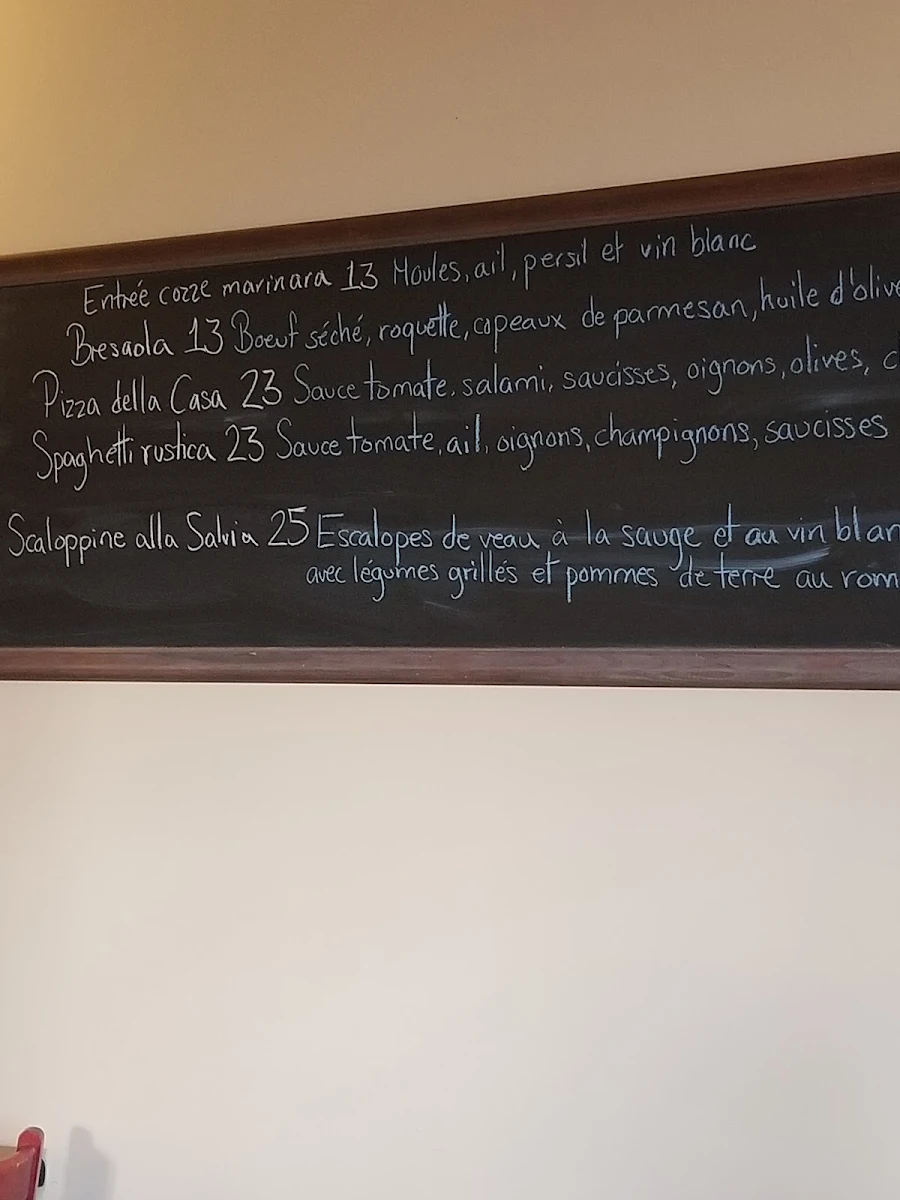 Entrée cozze marinara 13 Moules, ail, persil et vin blanc
Bresaola 13 Boeuf séché, roquette, copeaux de parmesan, huile d'olive
Pizza della Casa 23 Sauce tomate, salami, saucisses, oignons, olives,
Spaghetti rustica 23 Sauce tomate, ail, oignons, champignons, saucisses
Scaloppine alla Salvia 25 Escalopes de veau à la sauge et au vin blan
avec légumes grillés et pommes de terre au rom